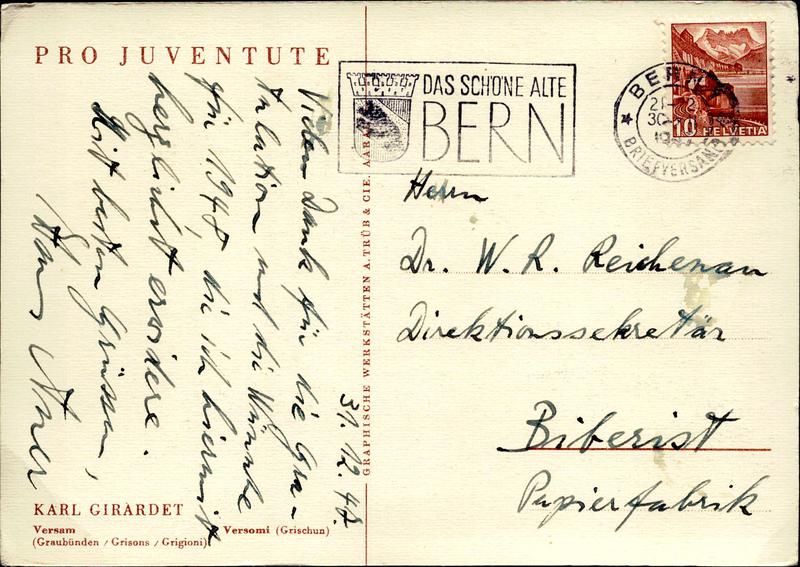 PRO JUVENTUTE
Vielen Dank für die Gra-
tulation und die Wünsche
für 1948, die ich hiermit
herzlichst erwidere.
Mit besten Grüssen,
Hans
31.12.47.
KARL GIRARDET
Versam Versomi (Grischun)
(Graubünden / Grisons / Grigioni)
GRAPHISCHE WERKSTÄTTEN A. TRÜB & CIE. AARAU
DAS SCHÖNE ALTE
BERN
BERN
BRIEFVERSAND
10 HELVETIA
Herrn
Dr. W. R. Reichenau
Direktionssekretär
Biberist
Papierfabrik